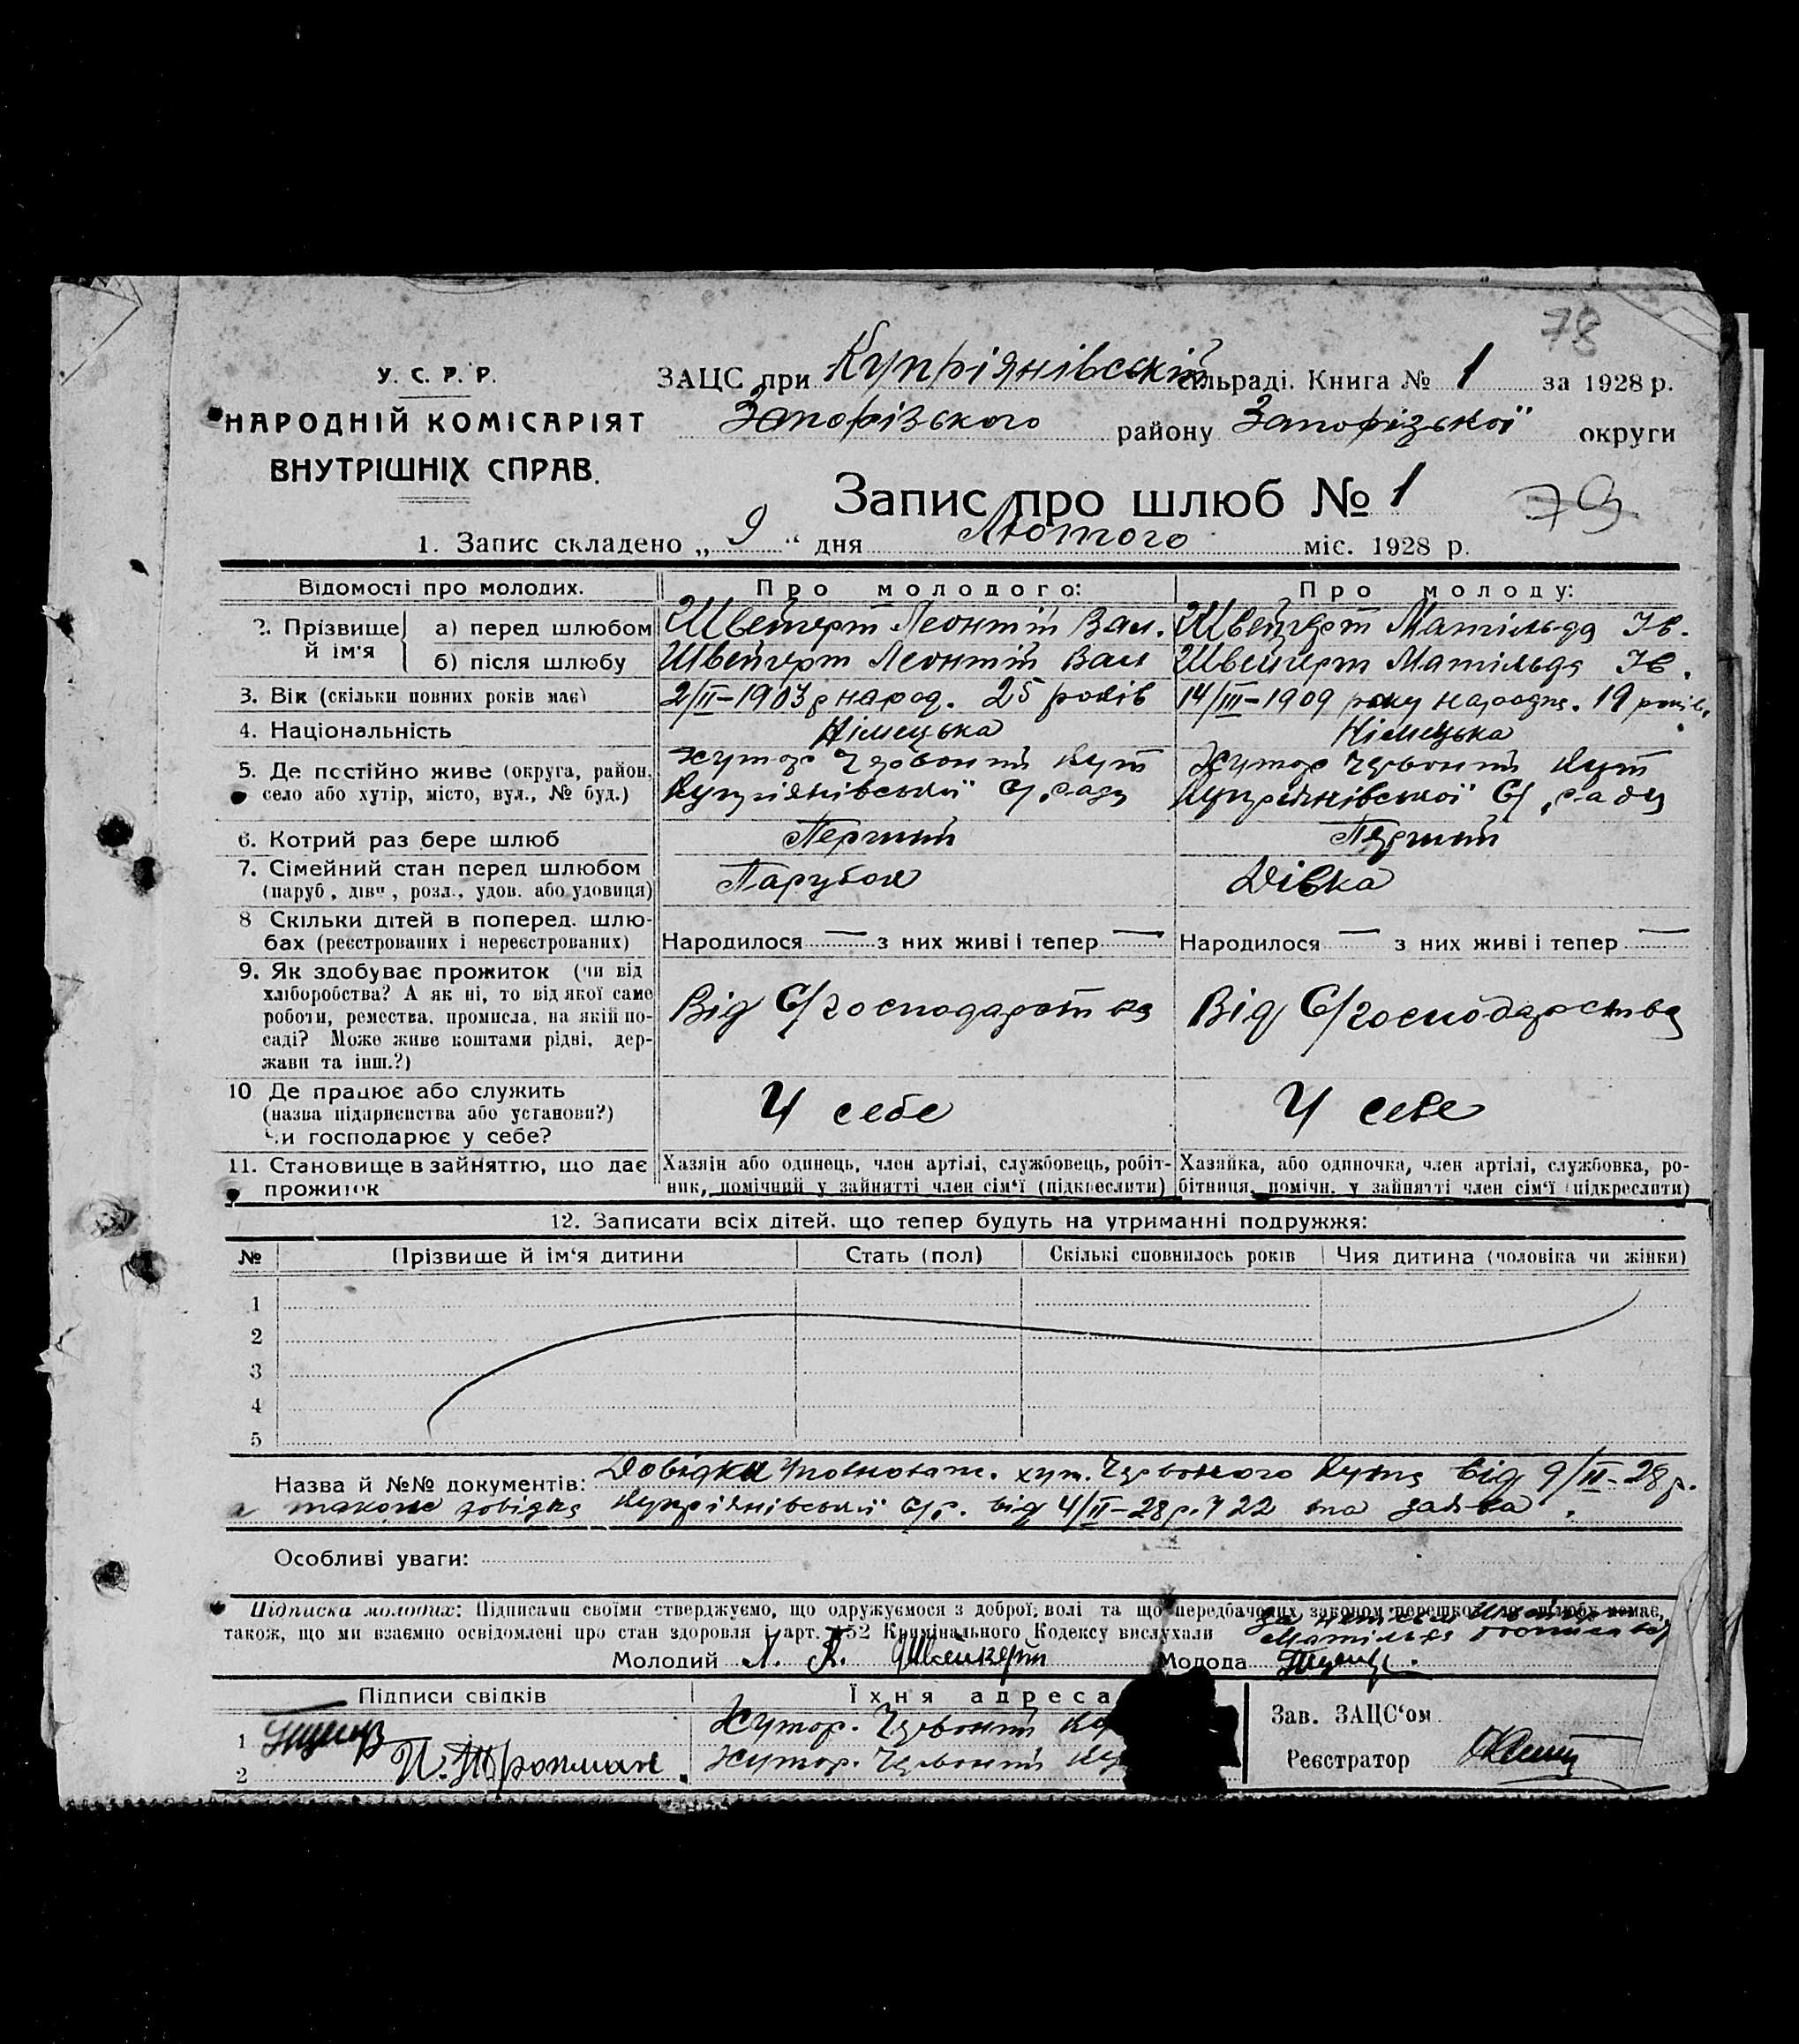 78
У. С. Р. Р.
НАРОДНІЙ КОМІСАРІЯТ
ВНУТРІШНІХ СПРАВ.
ЗАЦС при Купріянівській сільраді. Книга № 1 за 1928 р.
Запорізького району Запорізької округи
Запис про шлюб № 1
79
1. Запис складено „ 9 “ дня Лютого міс. 1928 р.
Відомості про молодих. Про молодого: Про молоду:
2. Прізвище й ім'я
а) перед шлюбом Швейгерт Леонтій Вал. Швейгерт Матільда Ів.
б) після шлюбу Швейгерт Леонтій Вал Швейгерт Матільда Ів.
3. Вік (скільки повних років має) 2/II-1903 р народ. 25 років 14/III-1909 року народж. 19 років.
4. Національність Німецька Німецька
5. Де постійно живе (округа, район, Хутор Червоний Кут Хутор Червоний Кут
село або хутір, місто, вул., № буд.) Купріянівської С/ради Купріянівської С/ради
6. Котрий раз бере шлюб Перший Перший
7. Сімейний стан перед шлюбом Парубок Дівка
(паруб, дівч, розл., удов. або удовиця)
8 Скільки дітей в поперед. шлю-
бах (реєстрованих і нереєстрованих) Народилося — з них живі і тепер — Народилося — з них живі і тепер —
9. Як здобуває прожиток (чи від
хліборобства? А як ні, то від якої саме Від С/господарства Від С/господарства
роботи, ремества, промисла, на якій по-
саді? Може живе коштами рідні, дер-
жави та інш.?)
10 Де працює або служить У себе У себе
(назва підприємства або установи?)
Чи господарює у себе?
11. Становище в зайняттю, що дає Хазяїн або одинець, член артілі, службовець, робіт- Хазяйка, або одиночка, член артілі, службовка, ро-
прожиток ник, помічний у зайнятті член сім'ї (підкреслити) бітниця, помічн. у зайнятті член сім'ї (підкреслити)
12. Записати всіх дітей, що тепер будуть на утриманні подружжя:
№ Прізвище й ім'я дитини Стать (пол) Скількі сповнилось років Чия дитина (чоловіка чи жінки)
1
2
3
4
5
Назва й №№ документів: Довідка хут. Червоного Кута від 9/II-28 р.
а також довідка Купріянівської С/р. від 4/II-28 р. № 22 та заява.
Особливі уваги:
Підписка молодих: Підписами своїми стверджуємо, що одружуємося з доброї волі та що передбачених законом перешкод до шлюбу немає,
також, що ми взаємно освідомлені про стан здоровля і арт. 152 Кримінального Кодексу вислухали
Матільда
Молодий Л. В. Швейкерт Молода
Підписи свідків Їхня адреса
1 Хутор. Червоний
2 Хутор. Червоний
Зав. ЗАЦС'ом
Реєстратор